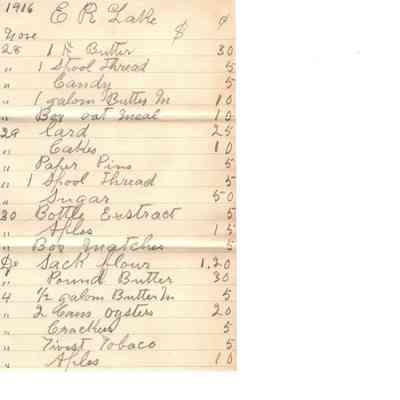 1916 E R Lake
Nove $ ¢
28 1 lb Butter 30
" 1 Spool Thread 5
" Candy 5
" 1 galom Butter In 10
" Box oat meal 10
29 Lard 25
" Cakes 10
" Paper Pins 5
" 1 Spool Thread 5
" Sugar 50
30 Bottle Exstract 5
" Aples 15
" Box matches 5
De Sack flour 1.20
" Pound Butter 30
4 1/2 galom Butter In 5
" 2 Cans oysters 20
" Crackers 5
" Twist Tobaco 5
" Aples 10